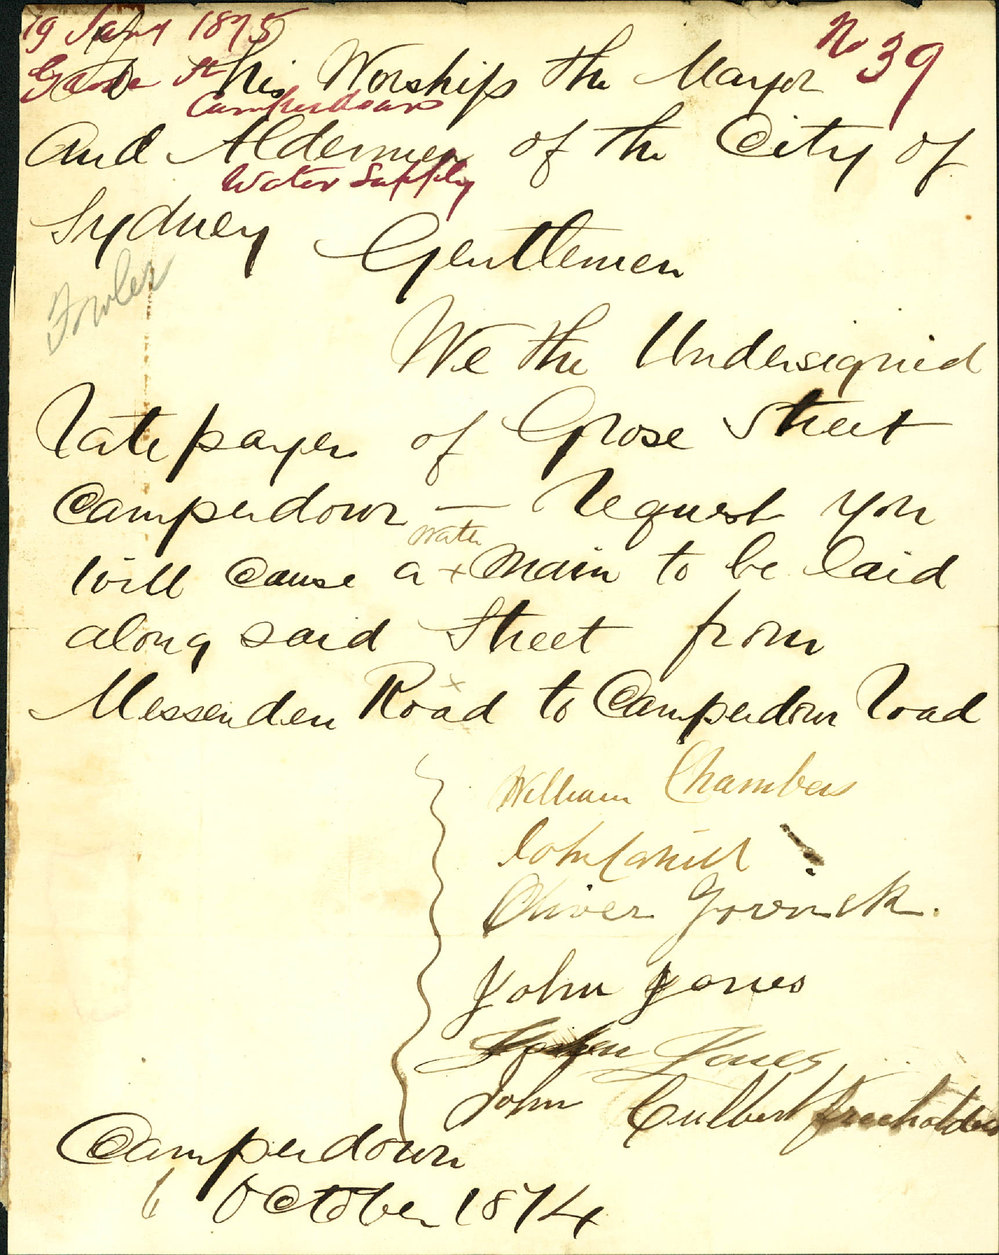 19 Jany 1875
No 39
Grose St
Camperdown
Water Supply
To his Worship the Mayor
and Aldermen of the City of
Sydney Gentlemen
Fowler
We the Undersigned
Ratepayers of Grose Street
Camperdown — request you
will cause a × water Main to be laid
along said Street from
Messenden Road to Camperdown Road
William Chambers
John Cahill
Oliver
John Jones
Jones
John Culbert freeholder
Camperdown
6 October 1874